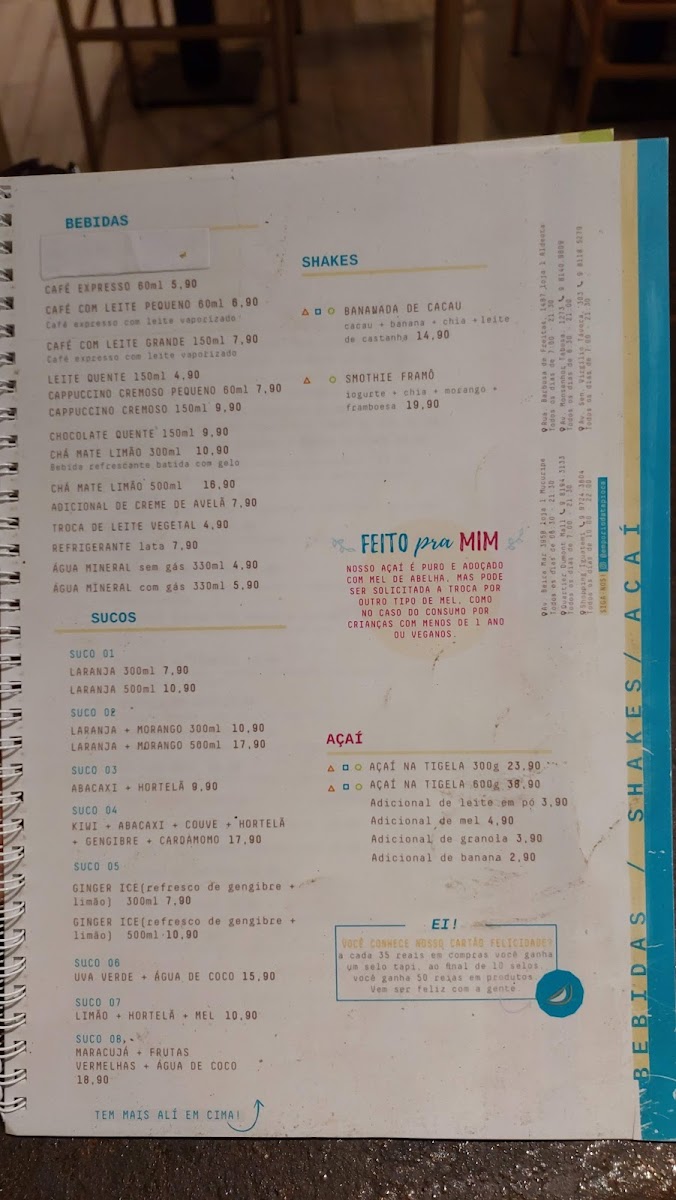 BEBIDAS
CAFÉ EXPRESSO 60ml 5,90
CAFÉ COM LEITE PEQUENO 60ml 6,90
Café expresso com leite vaporizado
CAFÉ COM LEITE GRANDE 150ml 7,90
Café expresso com leite vaporizado
LEITE QUENTE 150ml 4,90
CAPPUCCINO CREMOSO PEQUENO 60ml 7,90
CAPPUCCINO CREMOSO 150ml 9,90
CHOCOLATE QUENTE 150ml 9,90
CHÁ MATE LIMÃO 300ml 10,90
Bebida refrescante batida com gelo
CHÁ MATE LIMÃO 500ml 16,90
ADICIONAL DE CREME DE AVELÃ 7,90
TROCA DE LEITE VEGETAL 4,90
REFRIGERANTE lata 7,90
ÁGUA MINERAL sem gás 330ml 4,90
ÁGUA MINERAL com gás 330ml 5,90
SUCOS
SUCO 01
LARANJA 300ml 7,90
LARANJA 500ml 10,90
SUCO 02
LARANJA + MORANGO 300ml 10,90
LARANJA + MORANGO 500ml 17,90
SUCO 03
ABACAXI + HORTELÃ 9,90
SUCO 04
KIWI + ABACAXI + COUVE + HORTELÃ
+ GENGIBRE + CARDAMOMO 17,90
SUCO 05
GINGER ICE(refresco de gengibre +
limão) 300ml 7,90
GINGER ICE(refresco de gengibre +
limão) 500ml 10,90
SUCO 06
UVA VERDE + ÁGUA DE COCO 15,90
SUCO 07
LIMÃO + HORTELÃ + MEL 10,90
SUCO 08
MARACUJÁ + FRUTAS
VERMELHAS + ÁGUA DE COCO
18,90
TEM MAIS ALÍ EM CIMA!
SHAKES
BANAWADA DE CACAU
cacau + banana + chia +leite
de castanha 14,90
SMOTHIE FRAMÔ
iogurte + chia + morango +
framboesa 19,90
FEITO pra MIM
NOSSO AÇAÍ É PURO E ADOÇADO
COM MEL DE ABELHA, MAS PODE
SER SOLICITADA A TROCA POR
OUTRO TIPO DE MEL, COMO
NO CASO DO CONSUMO POR
CRIANÇAS COM MENOS DE 1 ANO
OU VEGANOS.
AÇAÍ
AÇAÍ NA TIGELA 300g 23,90
AÇAÍ NA TIGELA 600g 38,90
Adicional de leite em pó 3,90
Adicional de mel 4,90
Adicional de granola 3,90
Adicional de banana 2,90
EI!
VOCÊ CONHECE NOSSO CARTÃO FELICIDADE?
a cada 35 reais em compras você ganha
um selo tapi, ao final de 10 selos,
você ganha 50 reias em produtos.
Vem ser feliz com a gente
Rua. Barbosa de Freitas, 1497 loja 1 Aldeota
Todos os dias de 7:00 - 21:30
Av. Monsenhor Tabosa
Todos os dias de
Av. Sen. Virgílio Távora, 303
Todos os dias de 7:00 - 21:30
Av. Beira Mar 3959 loja 1 Mucuripe
Todos os dias de
Quartier Dumont Mall
Todos os dias de 7:00 - 21:30
Shopping Iguatemi
Todos os dias de 10:00 - 22:00
SIGA NOS:
BEBIDAS / SHAKES/ AÇAÍ